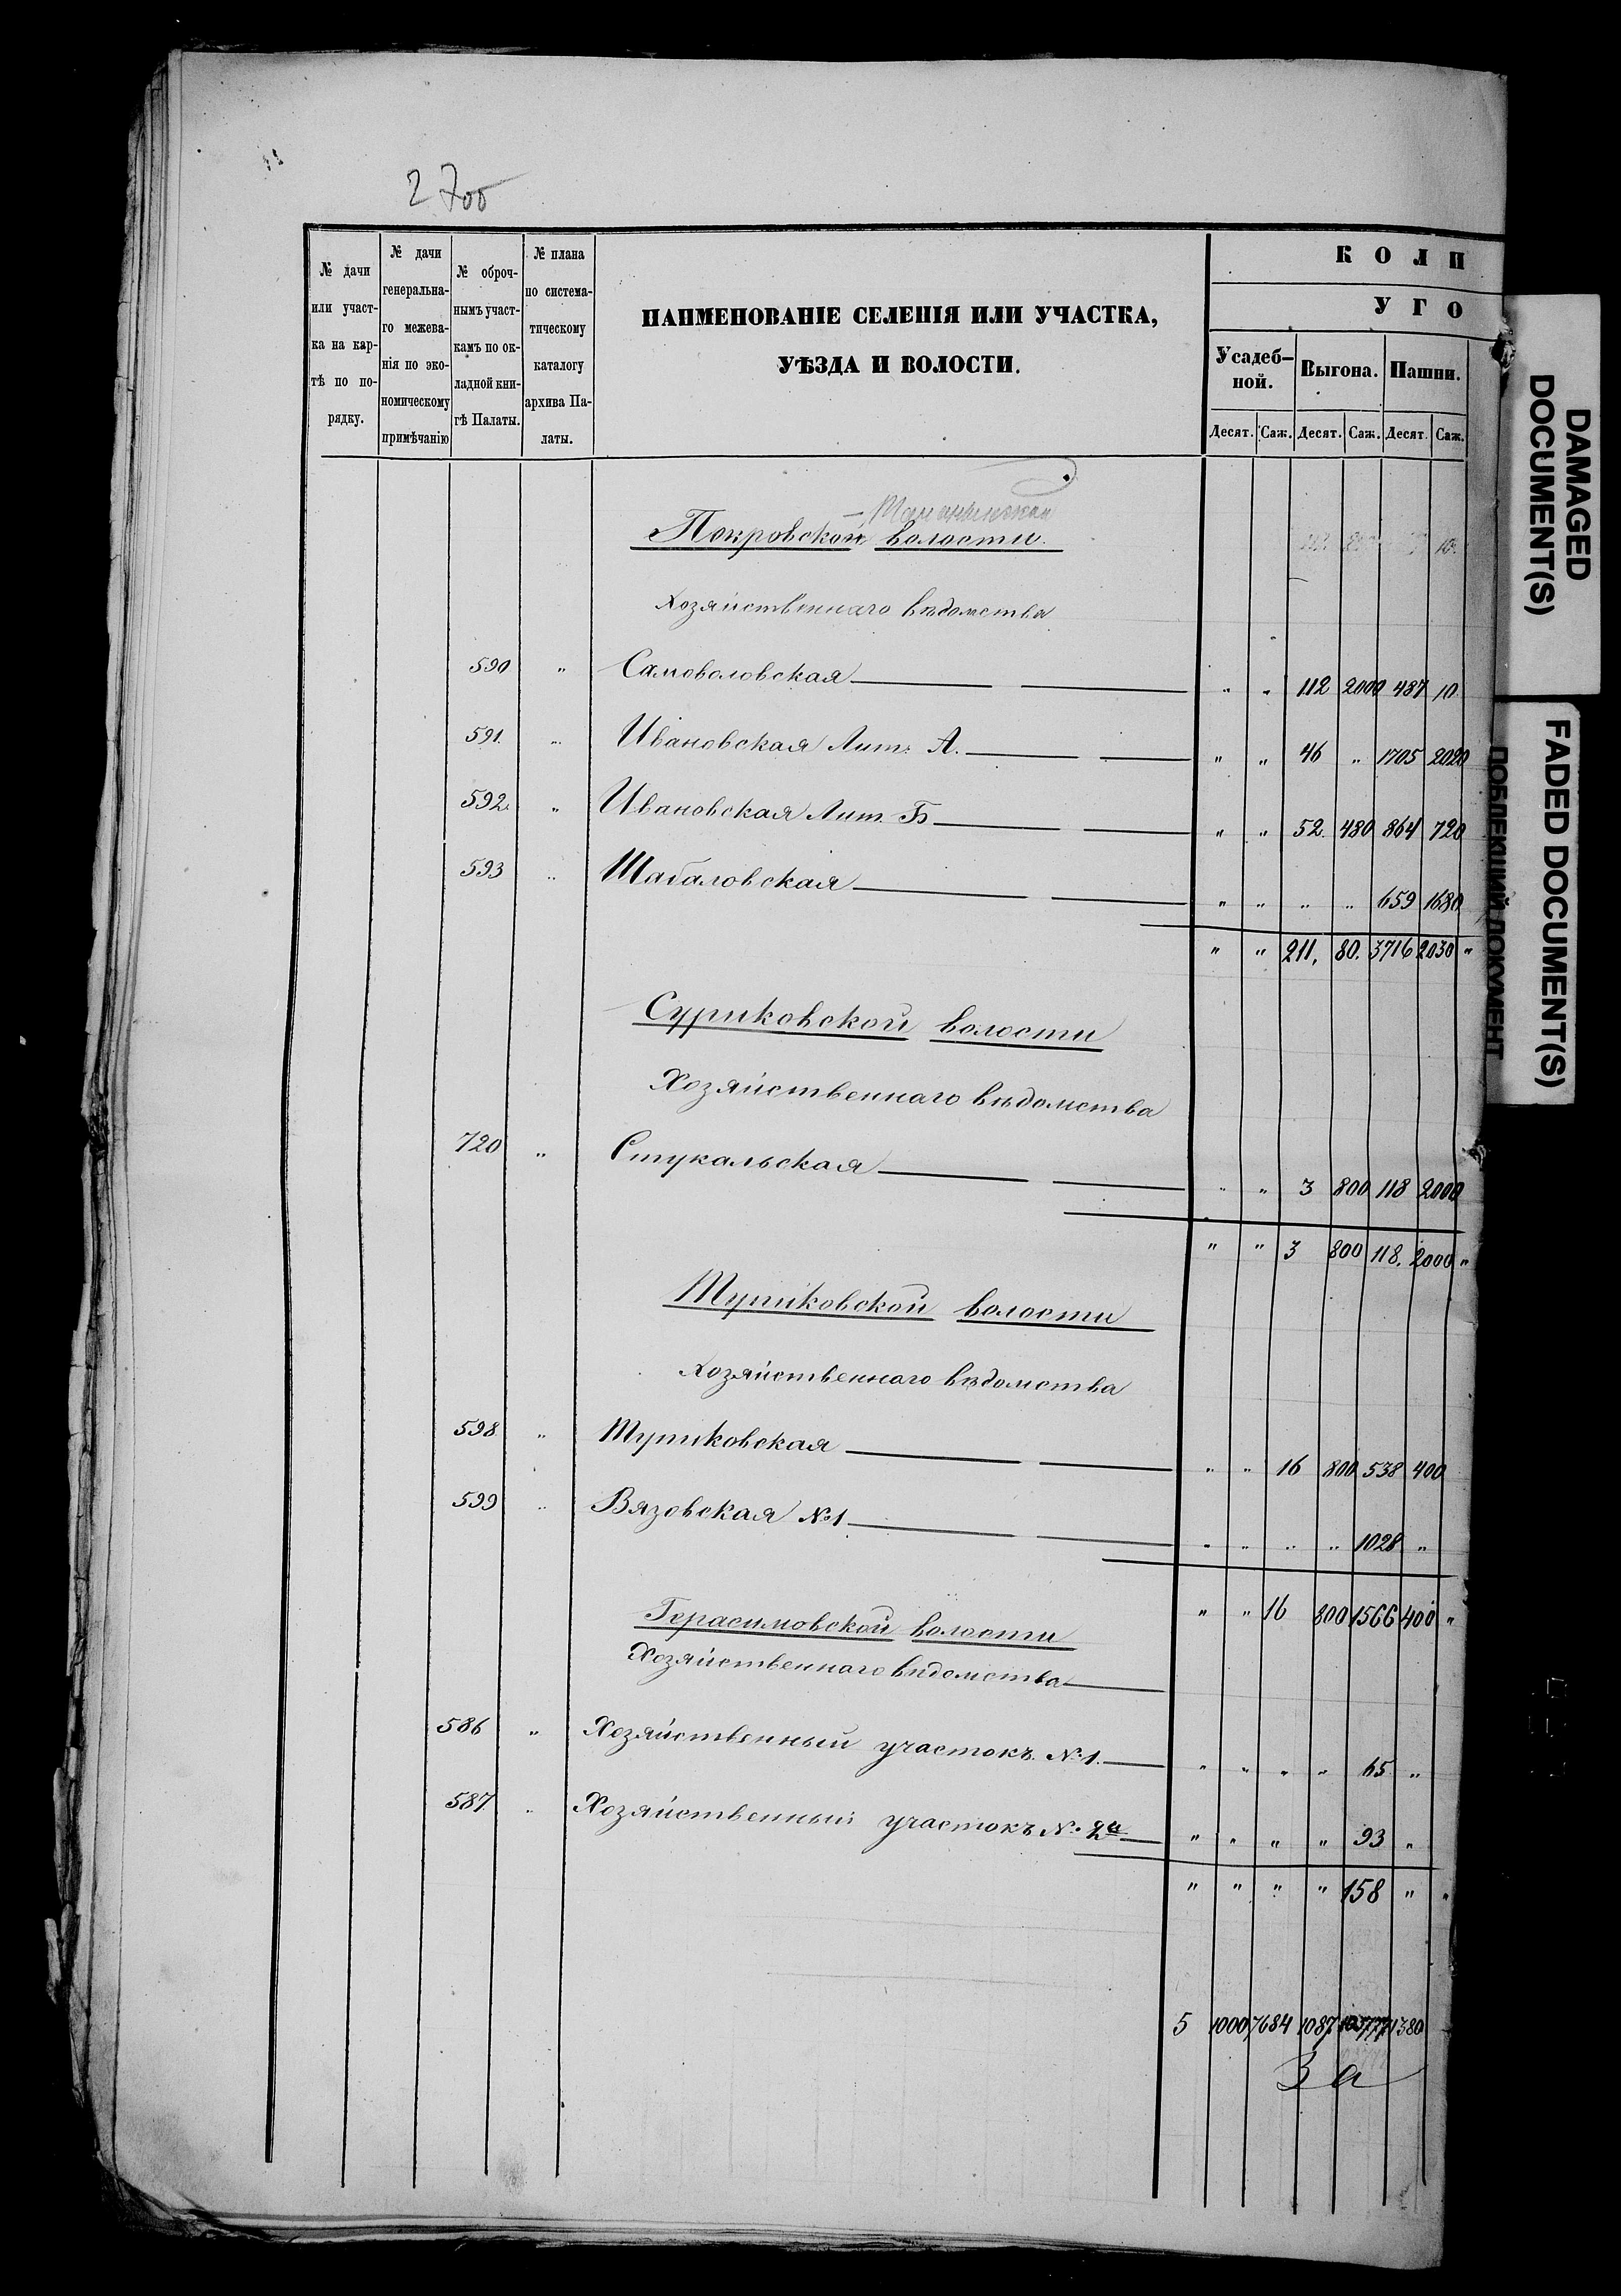 2700
№ дачи или участ-ка на кар-тѣ по по-рядку.
№ дачи генеральна-го межева-нія по эко-номическому примѣчанію
№ оброч-нымъ участ-камъ по ок-ладной кни-гѣ Палаты.
№ плана по система-тическому каталогу архива Па-латы.
НАИМЕНОВАНІЕ СЕЛЕНІЯ ИЛИ УЧАСТКА,
УѢЗДА И ВОЛОСТИ.
КОЛИ
УГО
Усадеб-ной. Выгона. Пашни.
Десят. Саж. Десят. Саж. Десят. Саж.
Покровской волости.
Хозяйственнаго вѣдомства
590 " Самоволовская " " 112 2000 487 10
591. " Ивановская Лит. А. " " 46 " 1705 2020
592. " Ивановская Лит. Б " " 52. 480 864 720
593 " Шабаловская " " " " 659 1680
" " 211, 80. 3716 2030 "
Суриковской волости
Хозяйственнаго вѣдомства
720 " Стукальская " " 3 800 118 2000
" " 3 800 118. 2000 "
Тупиковской волости
Хозяйственнаго вѣдомства
598 " Тупиковская " " 16 800 538 400
599 " Вязовская №1 " " " " 1028 "
" " 16 800 1566 400 "
Герасимовской волости
Хозяйственнаго вѣдомства
586 " Хозяйственный участокъ №1. " " " " 65 "
587 " Хозяйственный участокъ № 2й " " " " 93 "
" " " " 158 " "
5 1000 7684 1087 1380
За
DAMAGED DOCUMENT(S)
FADED DOCUMENT(S)
ПОБЛЕКШИЙ ДОКУМЕНТ